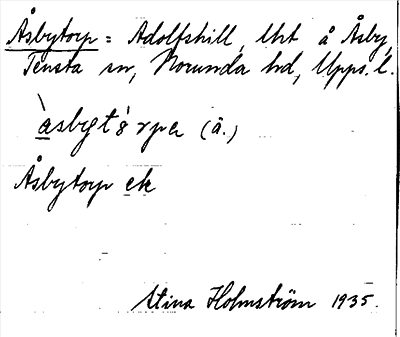 Åsbytorp = Adolfshill, lht å Åsby,
Tensta sn, Norunda hd, Upps. l.
àsbyt8̀rpa (ä.)
Åsbytorp ek
Stina Holmström 1935.